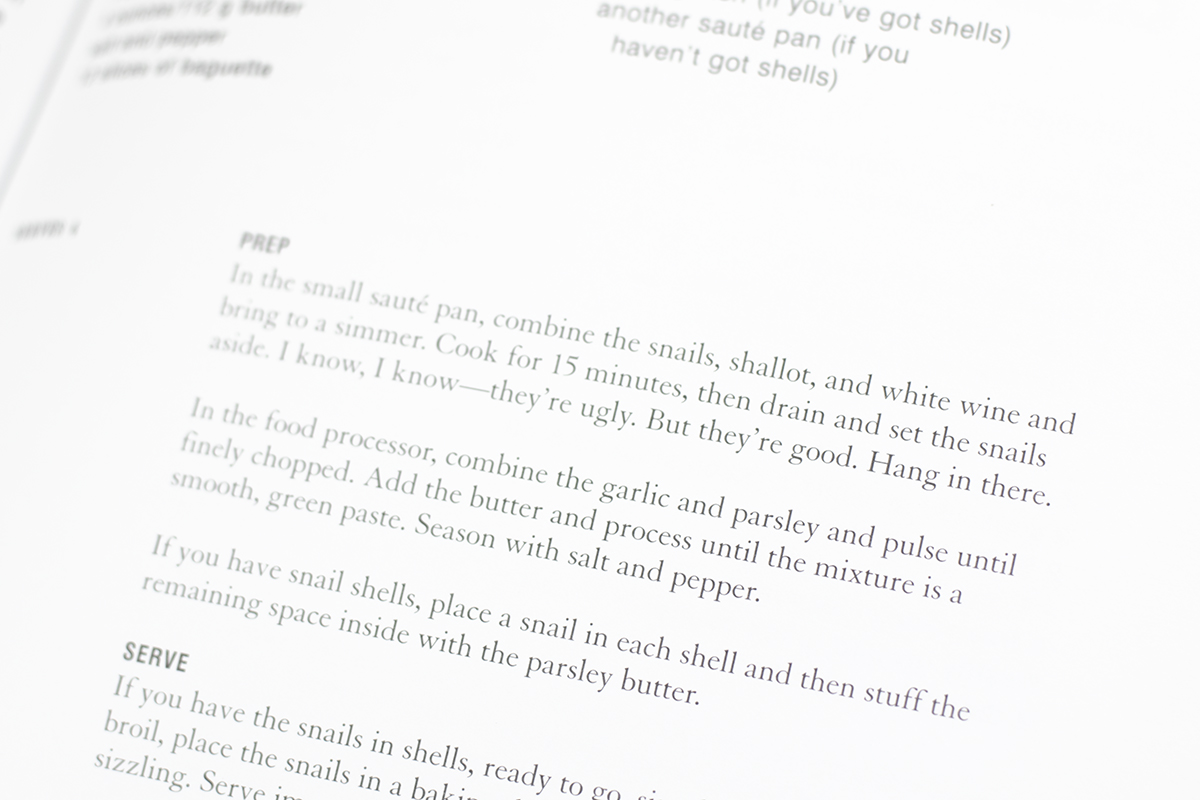 g butter
pepper
of baguette
(if you've got shells)
another sauté pan (if you
haven't got shells)
PREP
In the small sauté pan, combine the snails, shallot, and white wine and
bring to a simmer. Cook for 15 minutes, then drain and set the snails
aside. I know, I know—they're ugly. But they're good. Hang in there.
In the food processor, combine the garlic and parsley and pulse until
finely chopped. Add the butter and process until the mixture is a
smooth, green paste. Season with salt and pepper.
If you have snail shells, place a snail in each shell and then stuff the
remaining space inside with the parsley butter.
SERVE
If you have the snails in shells, ready to go,
broil, place the snails in a
sizzling. Serve